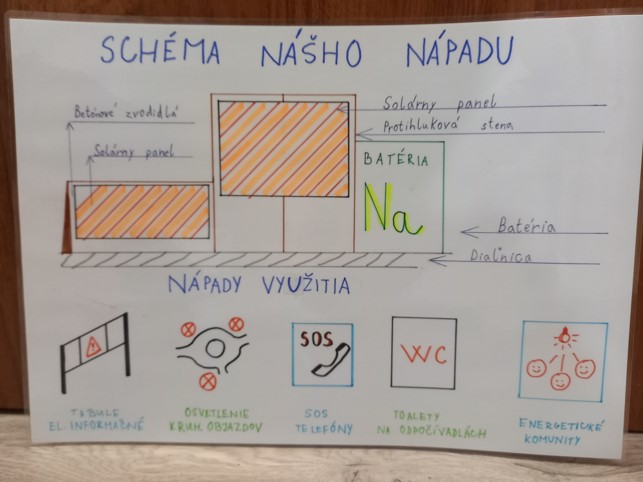 SCHÉMA NÁŠHO NÁPADU
Betónové zvodidlá
Solárny panel
Solárny panel
Protihluková stena
BATÉRIA
Na
Batéria
Diaľnica
NÁPADY VYUŽITIA
SOS
WC
TABULE
EL. INFORMAČNÉ
OSVETLENIE
KRUH. OBJAZDOV
SOS
TELEFÓNY
TOALETY
NA ODPOČÍVADLÁCH
ENERGETICKÉ
KOMUNITY